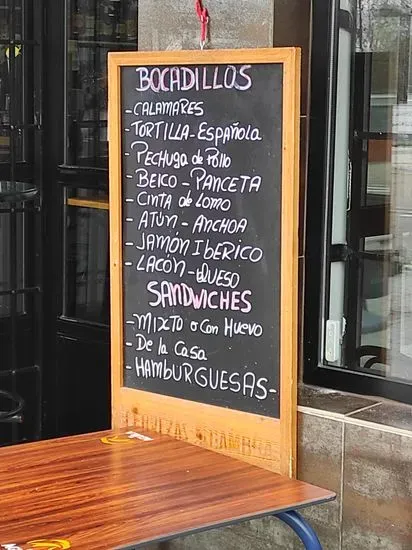 BOCADILLOS
-CALAMARES
-TORTILLA-Española
-PECHUGA de Pollo
-BEICO-PANCETA
-CINTA de Lomo
-ATÚN-ANCHOA
-JAMÓN IBERICO
-LACÓN-QUESO
SANDWICHES
-MIXTO o Con Huevo
-De la Casa
-HAMBURGUESAS-